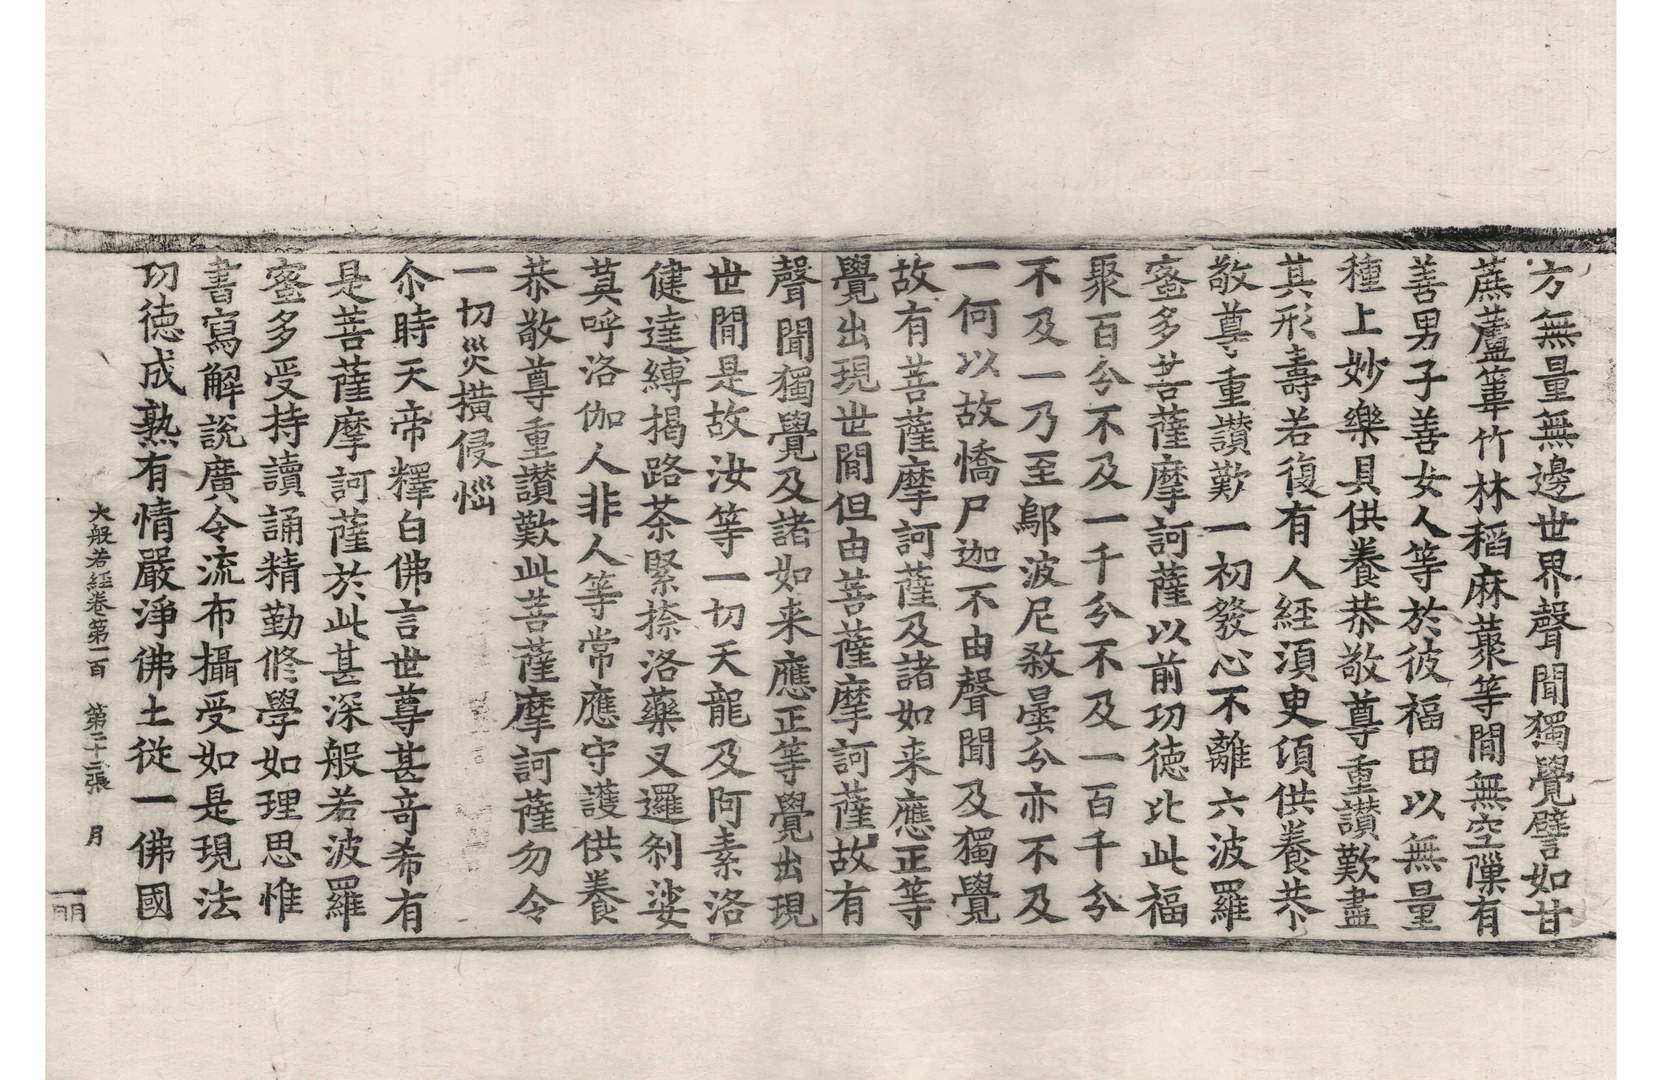 方無量無邊世界聲聞獨覺譬如甘
蔗蘆葦竹林稻麻藂等間無空隟有
善男子善女人等於彼福田以無量
種上妙樂具供養恭敬尊重讃歎盡
其形壽若復有人經湏臾頃供養恭
敬尊重讃歎一初發心不離六波羅
蜜多菩薩摩訶薩以前功德比此福
聚百分不及一千分不及一百千分
不及一乃至鄔波尼殺曇分亦不及
一何以故憍尸迦不由聲聞及獨覺
故有菩薩摩訶薩及諸如来應正等
覺出現世間但由菩薩摩訶薩故有
聲聞獨覺及諸如来應正等覺出現
世間是故汝等一切天龍及阿素洛
健達縛揭路茶緊捺洛藥叉邏刹娑
莫呼洛伽人非人等常應守護供養
恭敬尊重讃歎此菩薩摩訶薩勿令
一切災橫侵惱
尒時天帝釋白佛言世尊甚竒希有
是菩薩摩訶薩於此甚深般若波羅
蜜多受持讀誦精勤修學如理思惟
書寫解說廣令流布攝受如是現法
功德成熟有情嚴淨佛土從一佛國
大般若經卷第一百 第二十二張 月